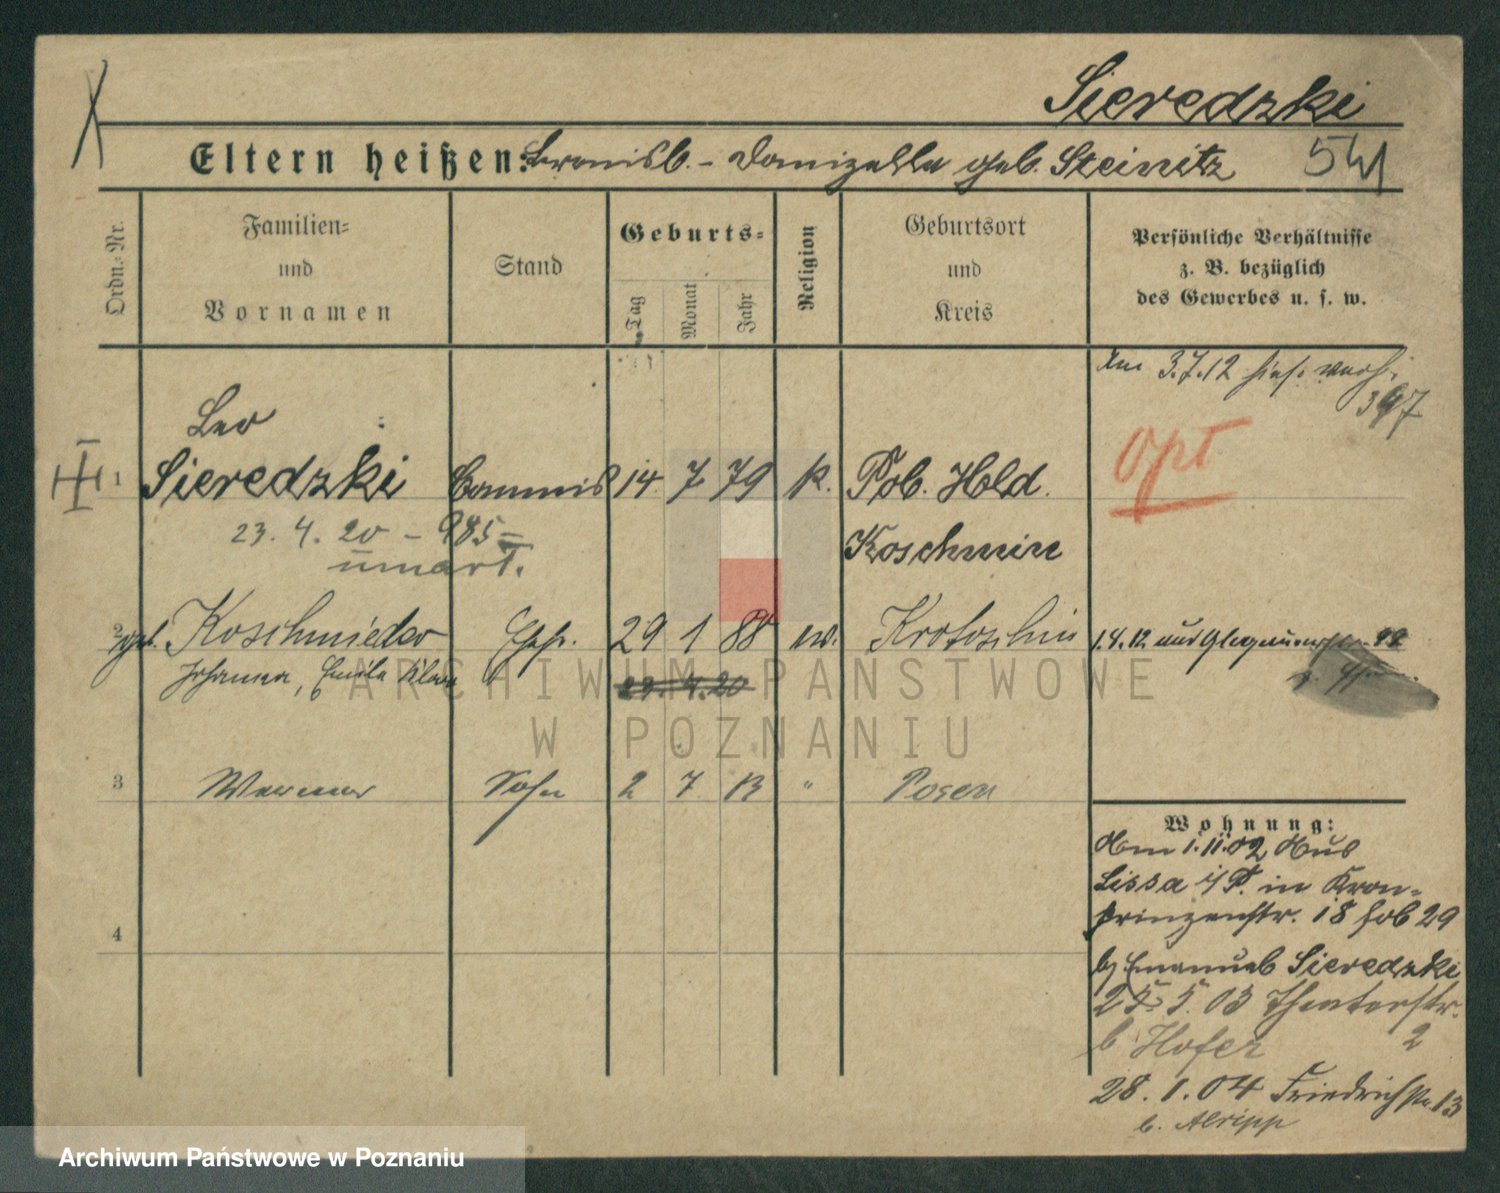 Sieredzki
Eltern heißen: Bronisl. - Domizella geb. Steinitz
541
Ordn.-Nr.
Familien-
und
Vornamen
Stand
Geburts-
Tag
Monat
Jahr
Religion
Geburtsort
und
Kreis
Persönliche Verhältnisse
z. B. bezüglich
des Gewerbes u. s. w.
Am 3.7.12
397
opt
Leo
1 Sieredzki Commis 14 7 79 k. Pob. Hld.
Koschmin
23. 4. 20 - 985
umart.
2 geb. Koschmieder Ehefr. 29 1 88 ev. Krotoschin
Johanna, Emilie Klara
23. 4. 20
1.4.12 aus
3 Werner Sohn 2 7 13 " Posen
4
Wohnung:
Am 1.11.02 Aus
Lissa i/P. in Kron-
prinzenstr. 18
b/ Emanuel Sieredzki
25. 5. 03 Theaterstr.
b Hofer 2
28. 1. 04 Friedrichstr. 13
b.
ARCHIWUM PAŃSTWOWE
W POZNANIU
Archiwum Państwowe w Poznaniu